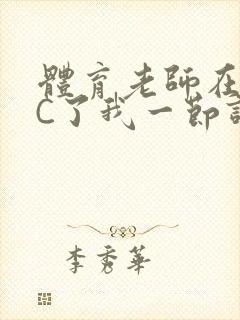 體育老師在
C了我一節
李秀華